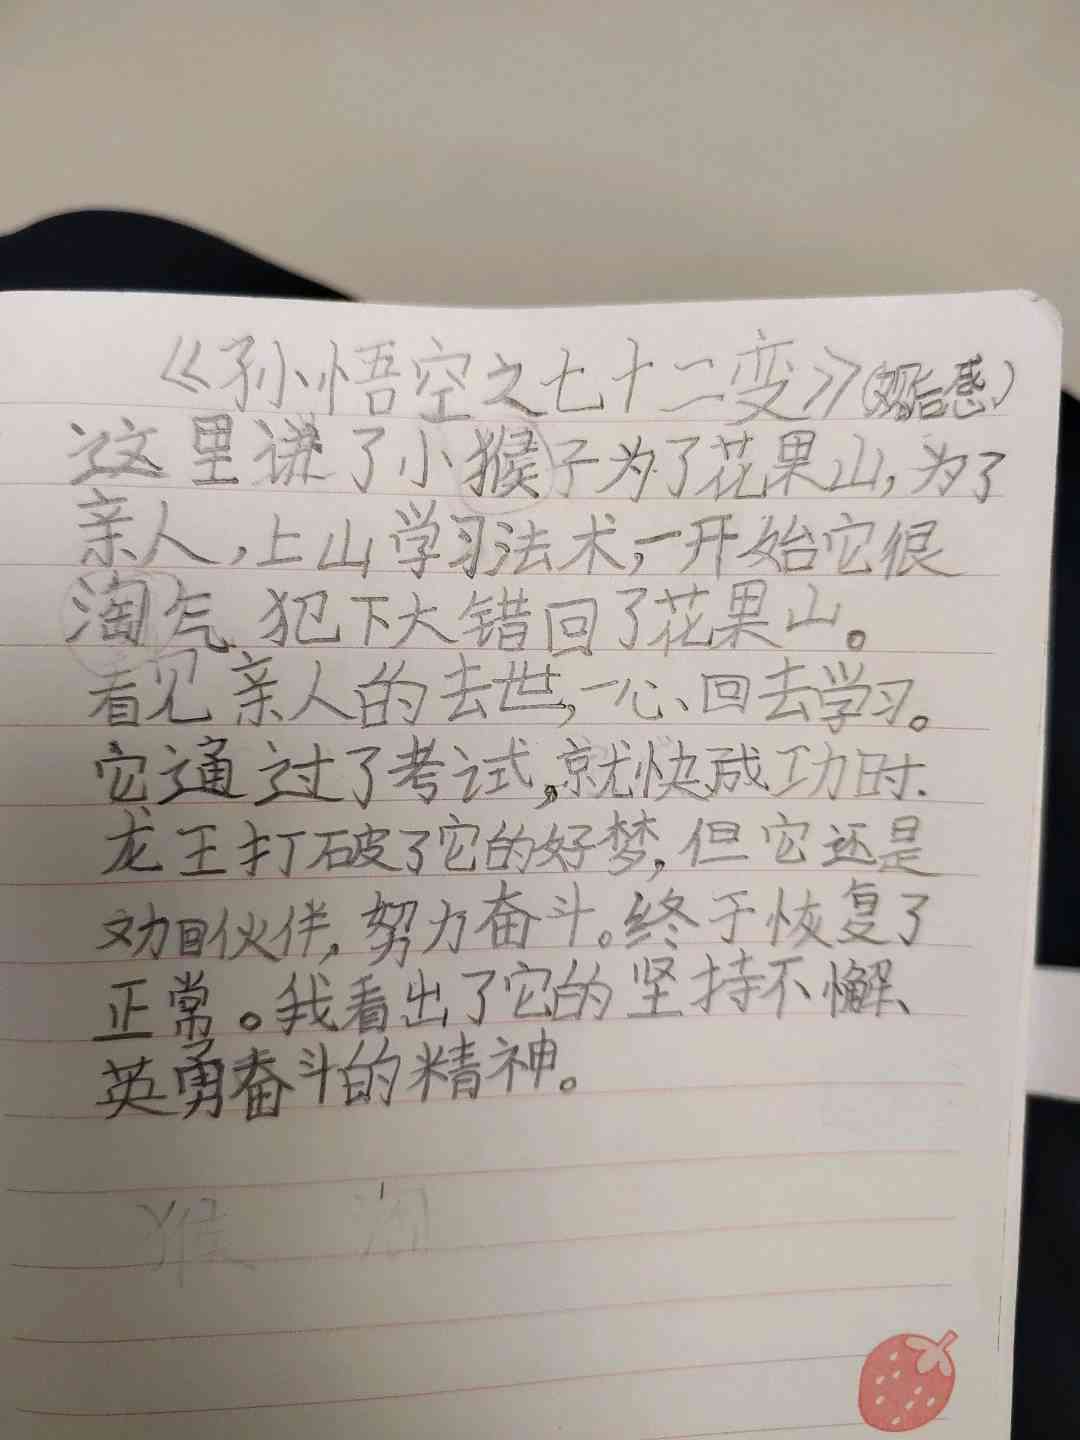 《孙悟空之七十二变》(观后感)
这里讲了小猴子为了花果山,为了
亲人,上山学习法术,一开始它很
淘气 犯下大错回了花果山。
看见亲人的去世,一心、回去学习。
它通过了考试,就快成功时.
龙王打破了它的好梦,但它还是
伙伴,努力奋斗。终于恢复了
正常。我看出了它的坚持不懈、
英勇奋斗的精神。
猴 淘